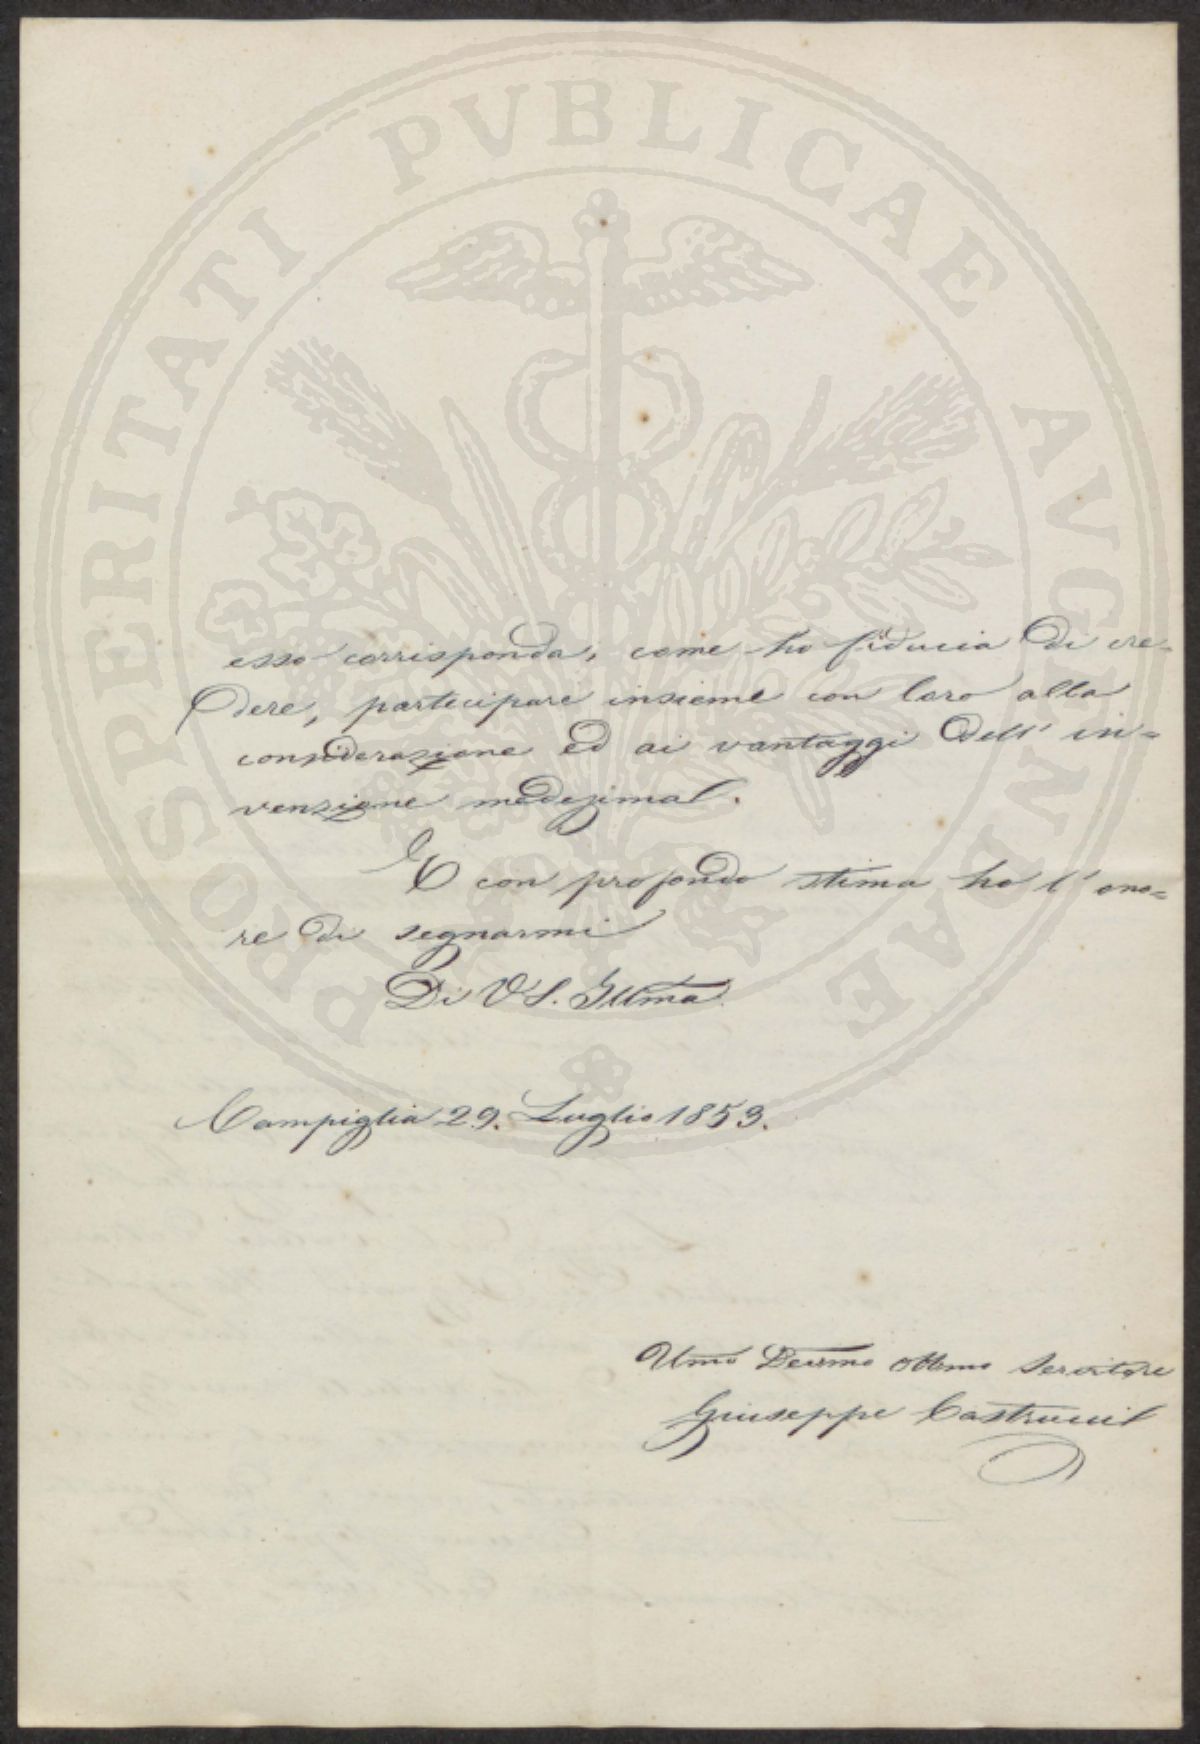 PROSPERITATI PVBLICAE AVGENDAE
esso corrisponda, come ho fiducia di cre=
dere, partecipare insieme con loro alla
considerazione ed ai vantaggi dell' in=
venzione medesima.
E con profonda stima ho l' ono=
re di segnarmi
Di V S. Illma
Campiglia 29. Luglio 1853.
Umo Devmo Obbmo Servitore
Giuseppe Castrucci